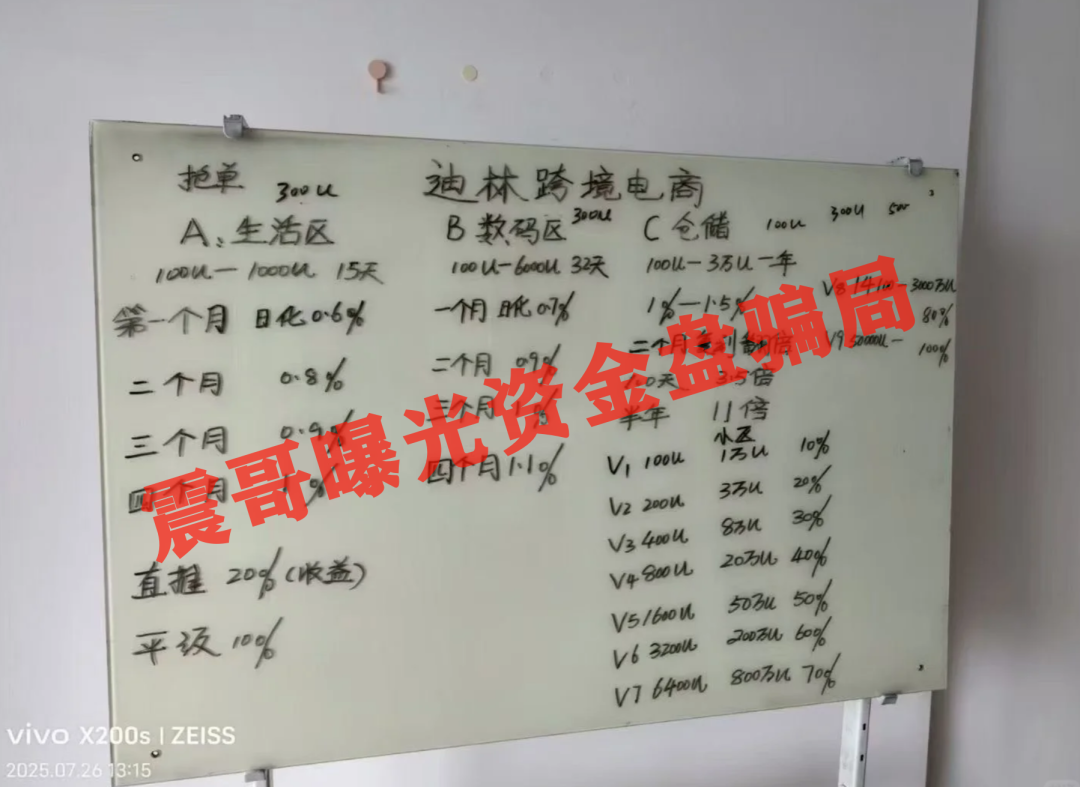 抢单 300U 迪林跨境电商
A、生活区 B 数码区 300U C 仓储 100U 300U 500
100U—1000U 15天 100U—6000U 32天 100U—3万U一年
第一个月 日化0.6% 一个月 日化0.7% 1%—1.5% V8 14100—3000万U 80%
二个月 0.8% 二个月 0.9% 二个月 翻倍 V9 50000U— 100%
三个月 0.9% 三个月 天 3.5倍
四个月 % 四个月 1.1% 半年 11倍
小区
V1 100U 1万U 10%
V2 200U 3万U 20%
V3 400U 8万U 30%
V4 800U 20万U 40%
V5 1600U 50万U 50%
V6 3200U 200万U 60%
V7 6400U 800万U 70%
直推 20%(收益)
平级 10%
震哥曝光资金盘骗局
vivo X200s | ZEISS
2025.07.26 13:15